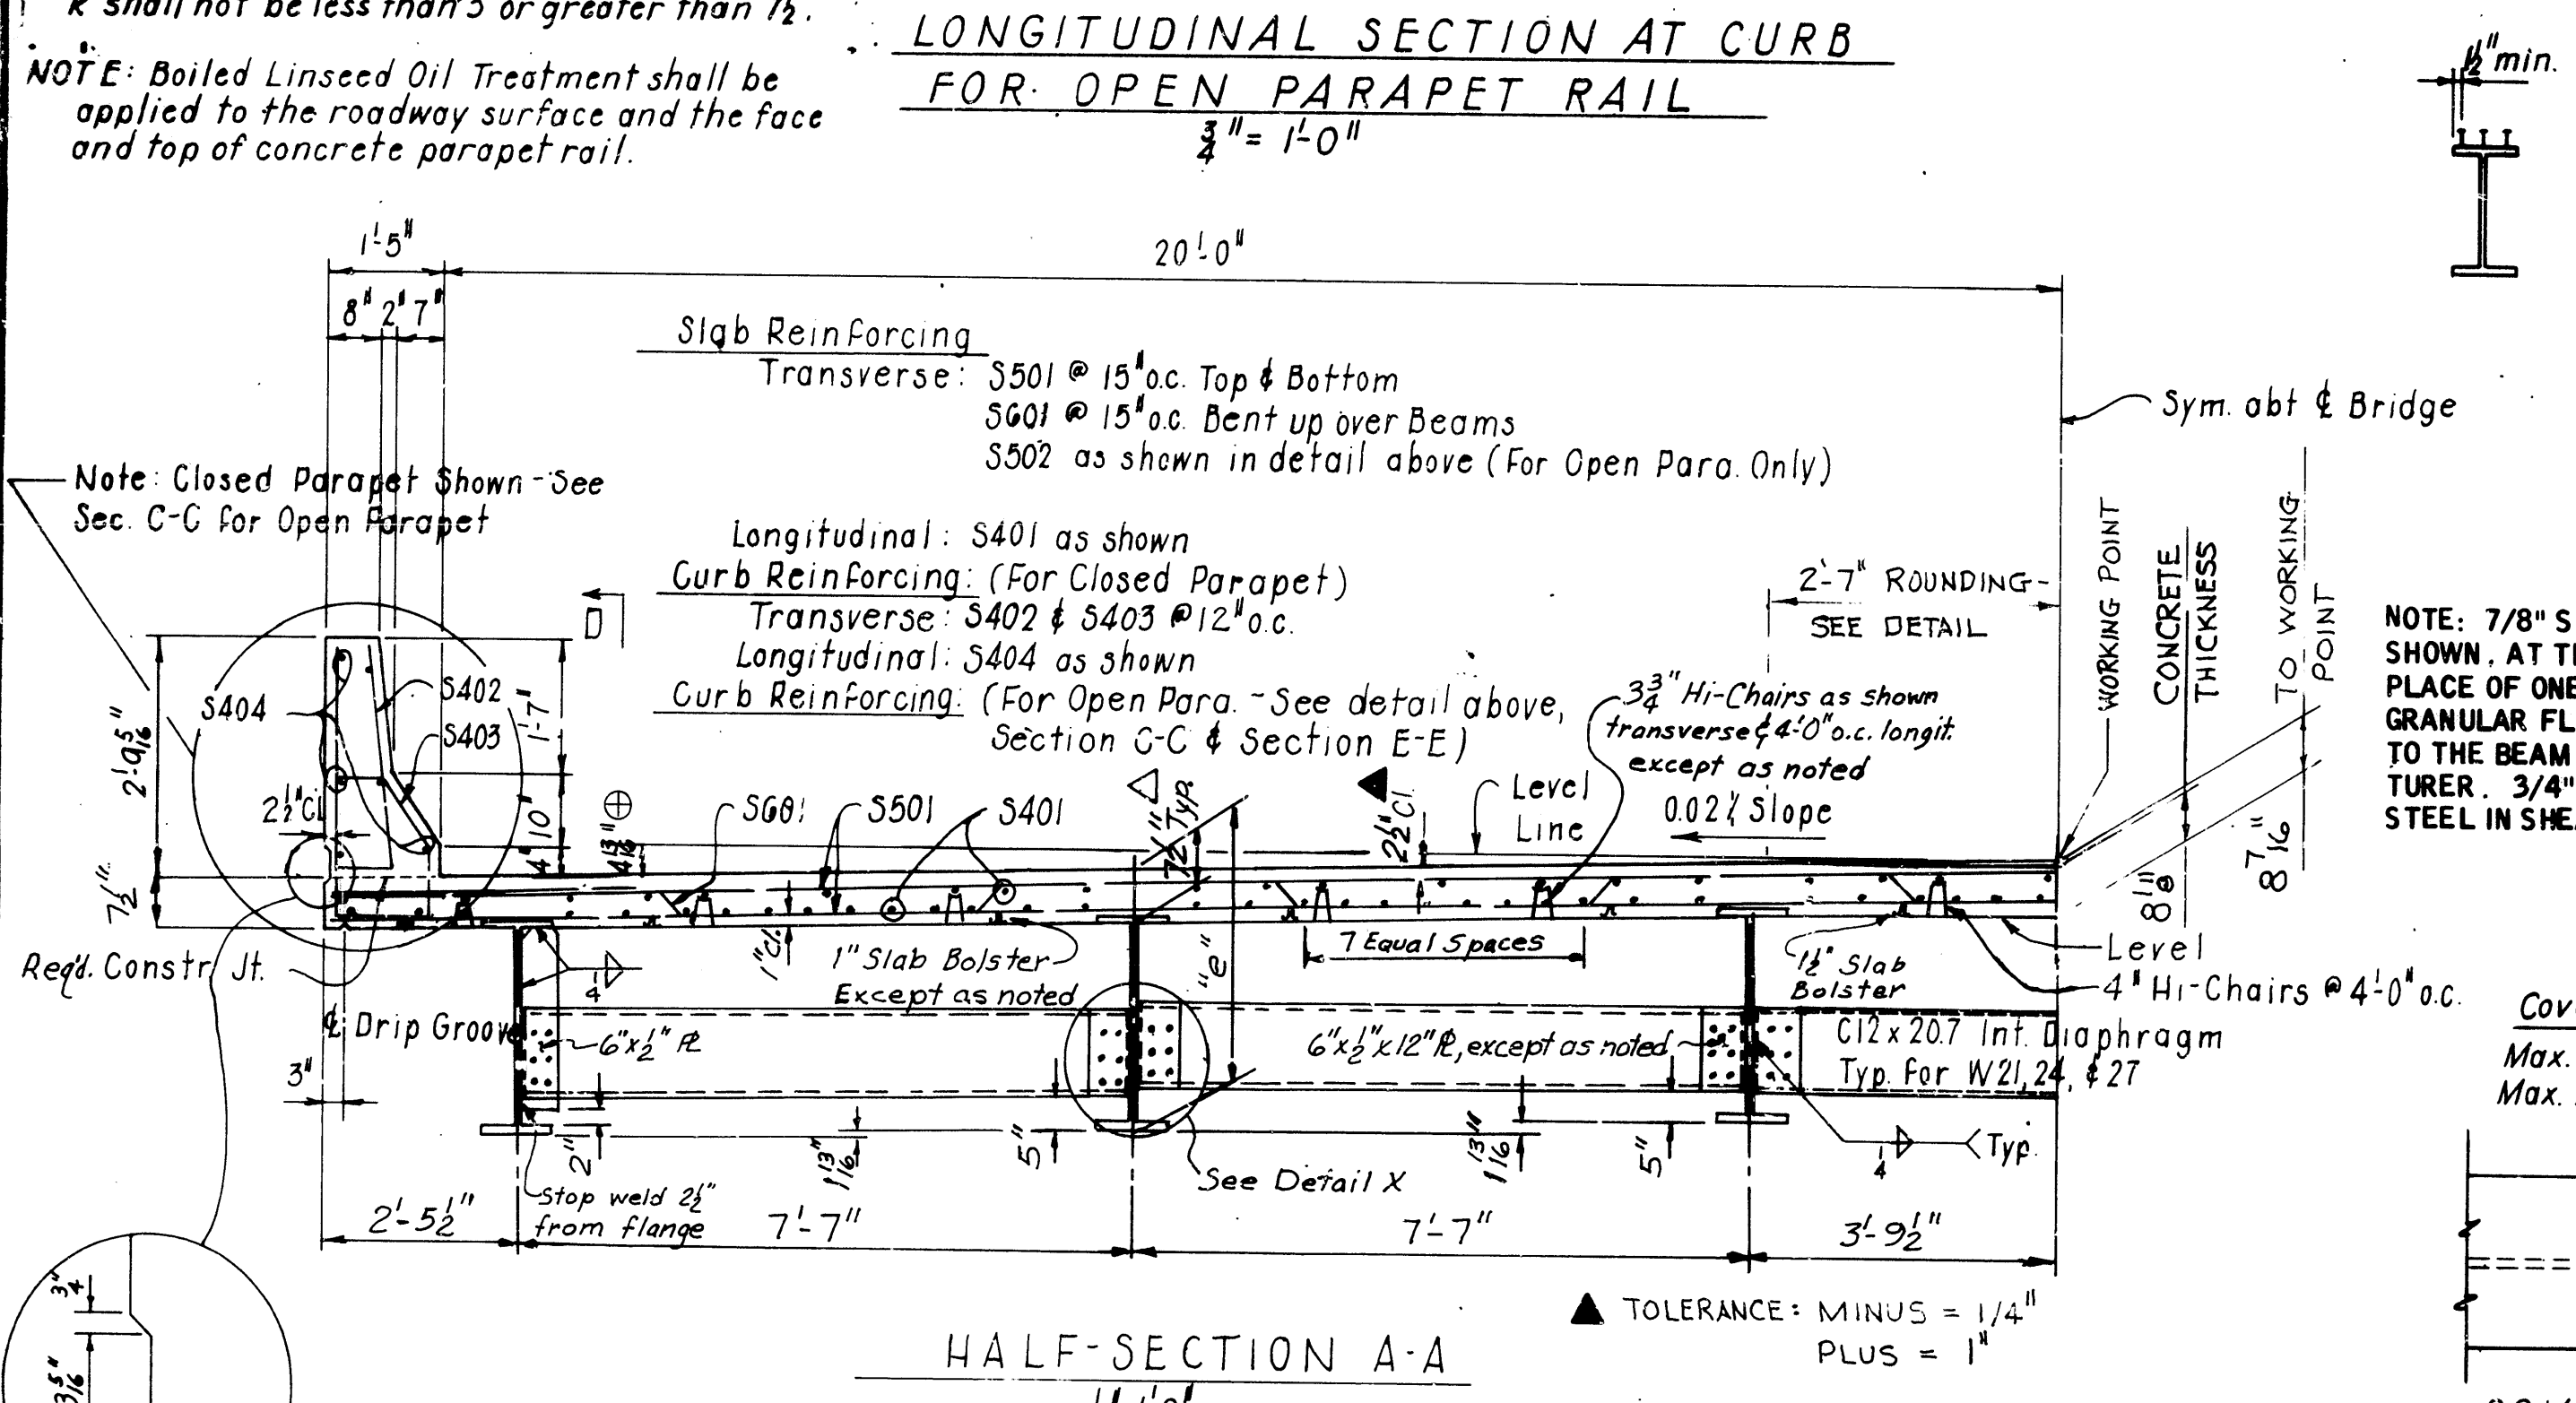 R shall not be less than 5 or greater than 7½.
NOTE: Boiled Linseed Oil Treatment shall be
applied to the roadway surface and the face
and top of concrete parapet rail.
LONGITUDINAL SECTION AT CURB
FOR OPEN PARAPET RAIL
3/4" = 1'-0"
½" min.
1'-5"
20'-0"
8" 2" 7"
Slab Reinforcing
Transverse: S501 @ 15" o.c. Top & Bottom
S601 @ 15" o.c. Bent up over Beams
S502 as shown in detail above (For Open Para. Only)
Sym. abt ℄ Bridge
Note: Closed Parapet Shown - See
Sec. C-C for Open Parapet
Longitudinal: S401 as shown
Curb Reinforcing: (For Closed Parapet)
Transverse: S402 & S403 @ 12" o.c.
Longitudinal: S404 as shown
Curb Reinforcing: (For Open Para. - See detail above,
Section C-C & Section E-E)
D
2'-7" ROUNDING
SEE DETAIL
WORKING POINT
CONCRETE
THICKNESS
TO WORKING
POINT
8⅛"
8 7/16"
NOTE: 7/8" S
SHOWN. AT TH
PLACE OF ONE
GRANULAR FL
TO THE BEAM
TURER. 3/4"
STEEL IN SHEA
S404
S402
S403
2'-9 5/16"
7½"
1'-7"
10"
4"
2½" Cl.
4 13/16" ⊕
S601
S501
S401
7½" Typ.
△
▲
2½" Cl.
3¾" Hi-Chairs as shown
transverse & 4'-0" o.c. longit.
except as noted
Level
Line
0.02'/' Slope
Req'd. Constr. Jt.
1" cl.
1" Slab Bolster
Except as noted
"e"
7 Equal Spaces
1½" Slab
Bolster
Level
4" Hi-Chairs @ 4'-0" o.c.
℄ Drip Groove
1/4
6"x½" ℞
6"x½"x12" ℞, except as noted
C12x20.7 Int. Diaphragm
Typ. for W21, 24, & 27
3"
2"
1 13/16"
5"
1 13/16"
5"
1/4
Typ.
See Detail X
Stop weld 2½"
from flange
2'-5½"
7'-7"
7'-7"
3'-9½"
▲ TOLERANCE: MINUS = 1/4"
PLUS = 1"
HALF-SECTION A-A
3/4"
3 5/16"
Max.
Max.